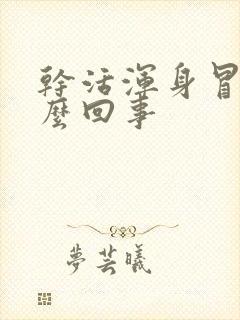 幹活渾身冒
麼回事
夢芸曦